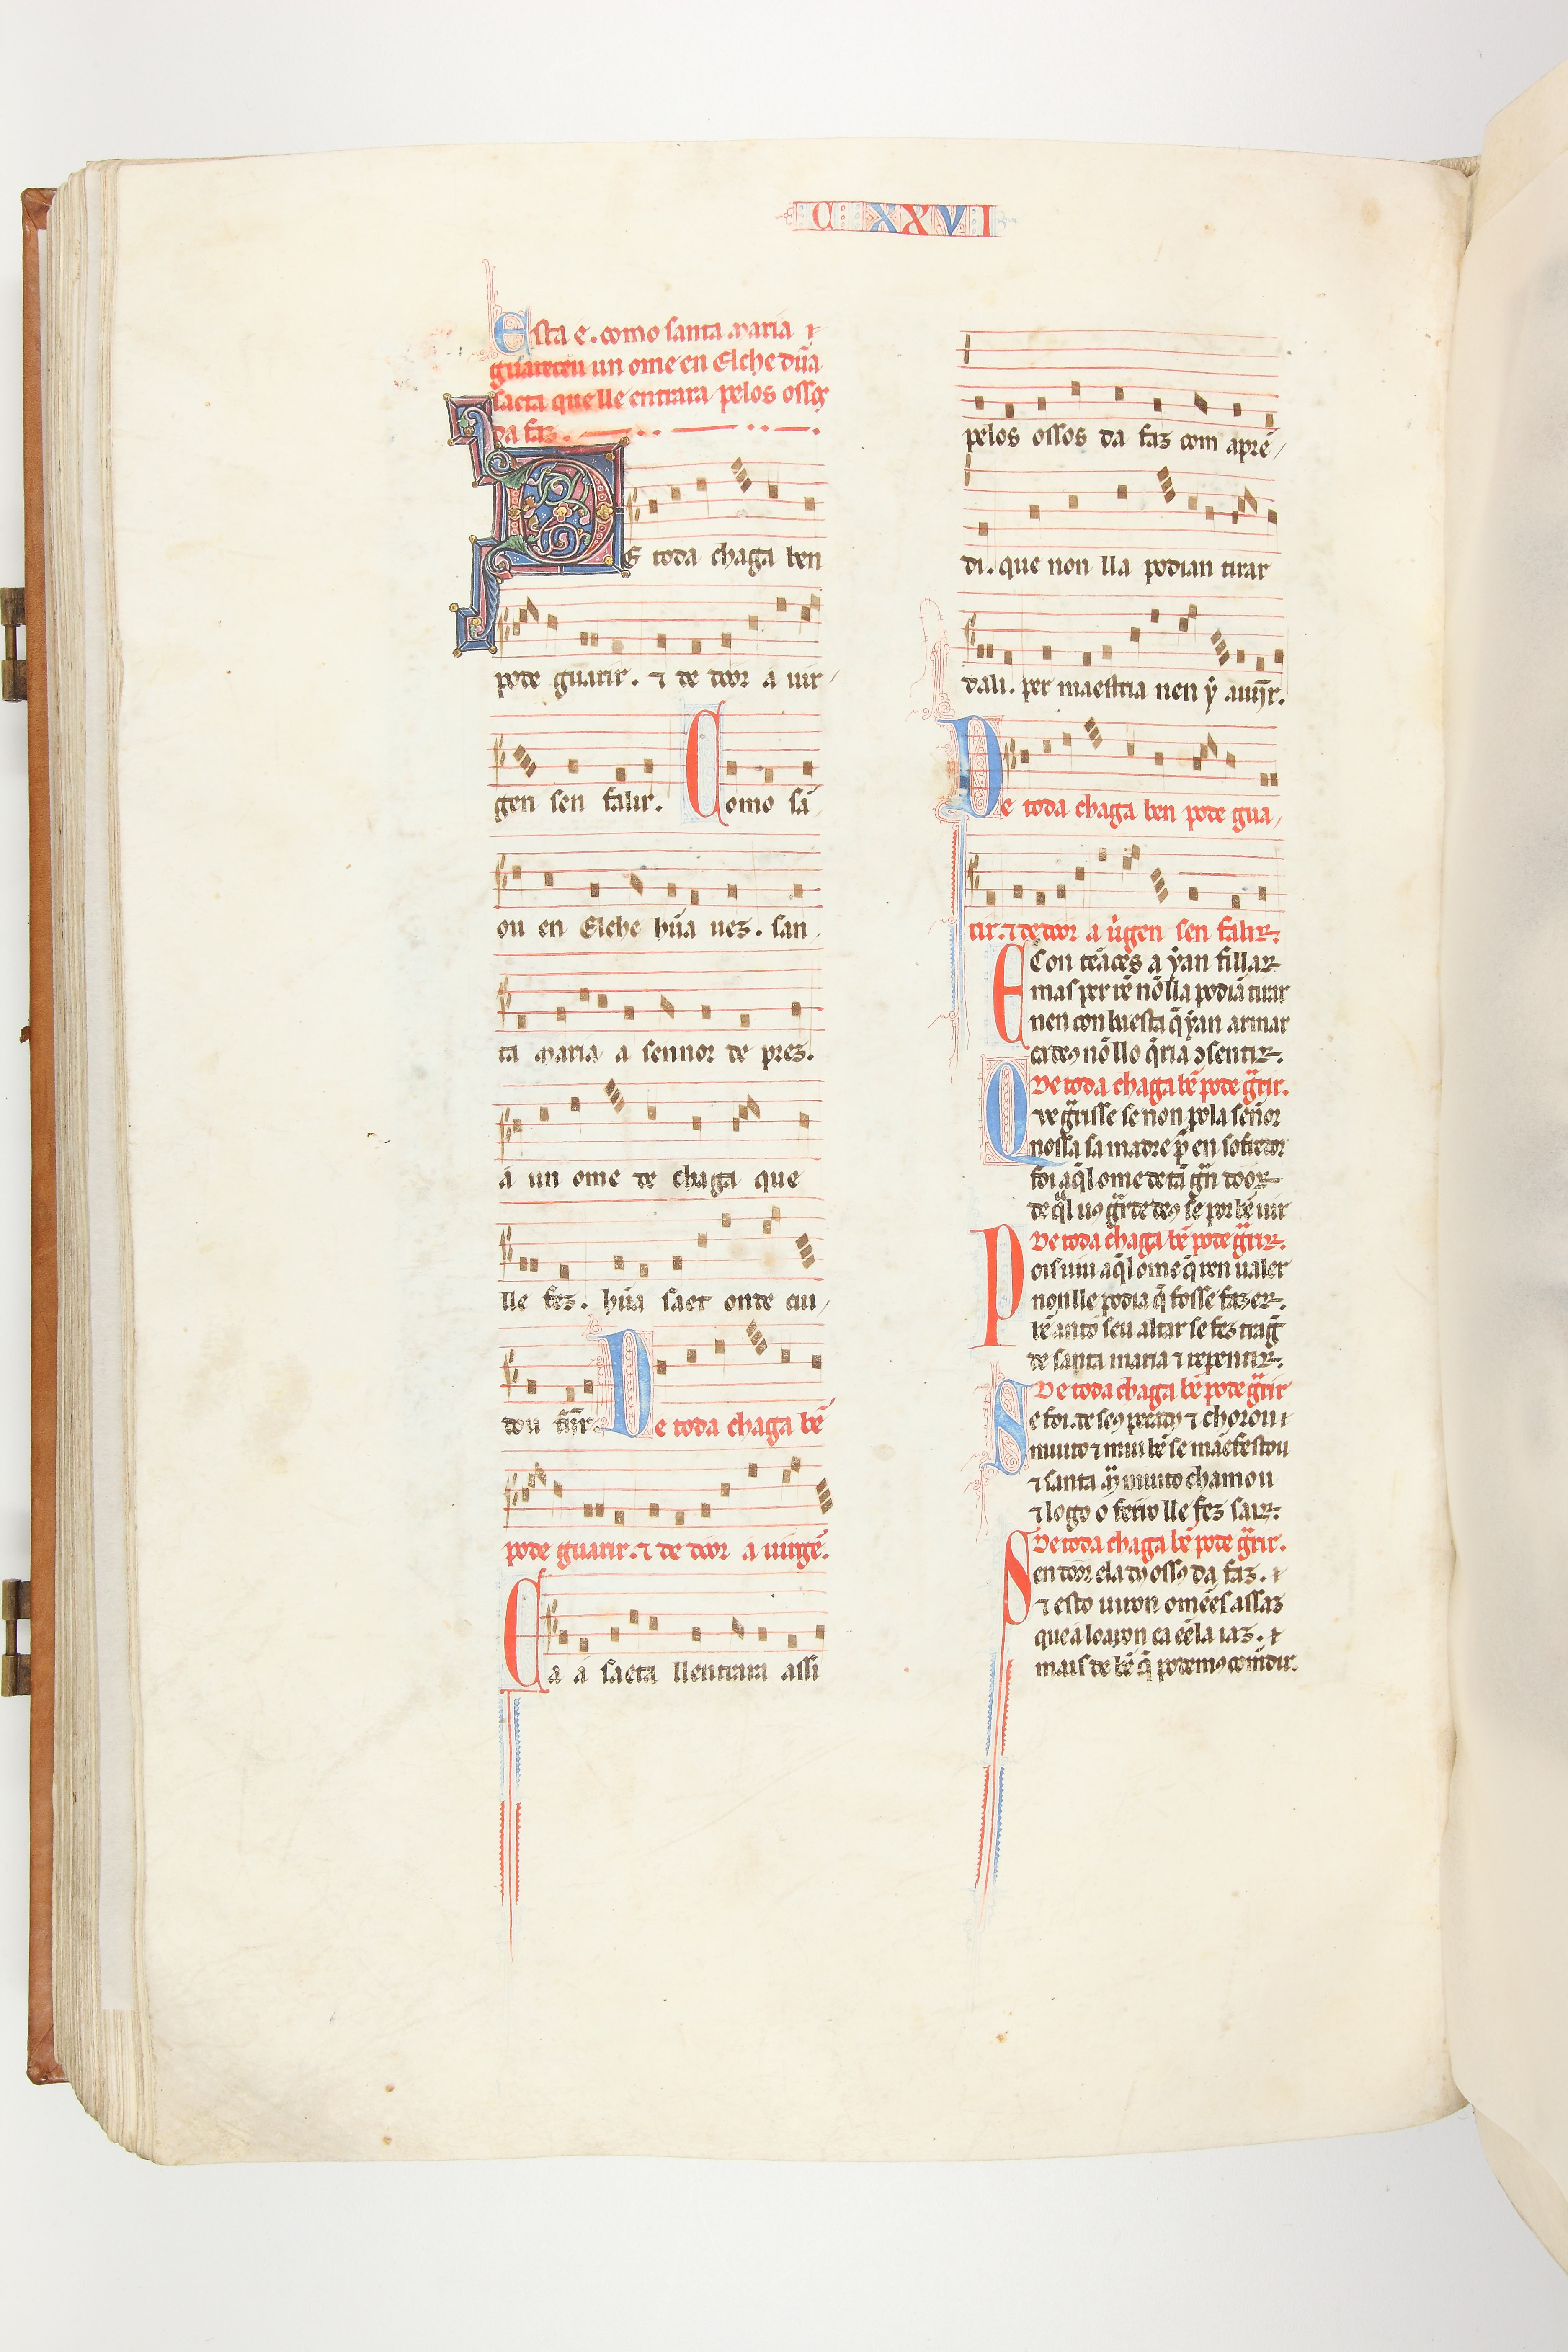 C XXVI
Esta é. como santa maria
guareceu un ome en Elche dũa
saeta que lle entrara pelos ossos
da faz.
DE toda chaga ben
pode guarir. ⁊ de door a uir
gen sen falir. Como sã
ou en Elche hũa uez. san
ta maria a sennor de prez.
á un ome de chaga que
lle fez. hũa saet onde cui
dou De toda chaga bẽ
pode guarir. ⁊ de door a uirgẽ.
Ca á saeta llentrara assi
pelos ossos da faz com aprẽ
di. que non lla podian tirar
dali. per maestria nen ẏ
De toda chaga ben pode gua
rir. ⁊ de door a u'gen sen falir.
E Con tẽaces a ẏan fillar
mas per rẽ nõ lla podiã tirar
nen con baesta q̃ ẏan armar
ca deꝰ nõ llo q̃ria ↄsentir.
De toda chaga bẽ pode g̃rir.
Que g̃risse se non pola señor
nossa sa madre q̃ en sofredor
foi aq̃l ome de tã g̃n door
de q̃l uꝰ g̃r de deꝰ se por bẽ uir
De toda chaga bẽ pode g̃rir.
Pois uiu aq̃l ome q̃ ren ualer
non lle podia q̃ fosse fazer.
bẽ anto seu altar se fez trag̃
de santa maria ⁊ repentir.
De toda chaga bẽ pode g̃rir
Se foi. de seꝰ pecadꝰ ⁊ chorou
muito ⁊ mui bẽ se mãefestou
⁊ santa m̃ muito chamou
⁊ logo o ferro lle fez sair.
De toda chaga bẽ pode g̃rir.
Sen door ela dꝰ ossꝰ da faz.
⁊ esto uiron omẽes assaz
que á loaron ca ẽ ela iaz.
mais de bẽ q̃ podemꝰ comidir.